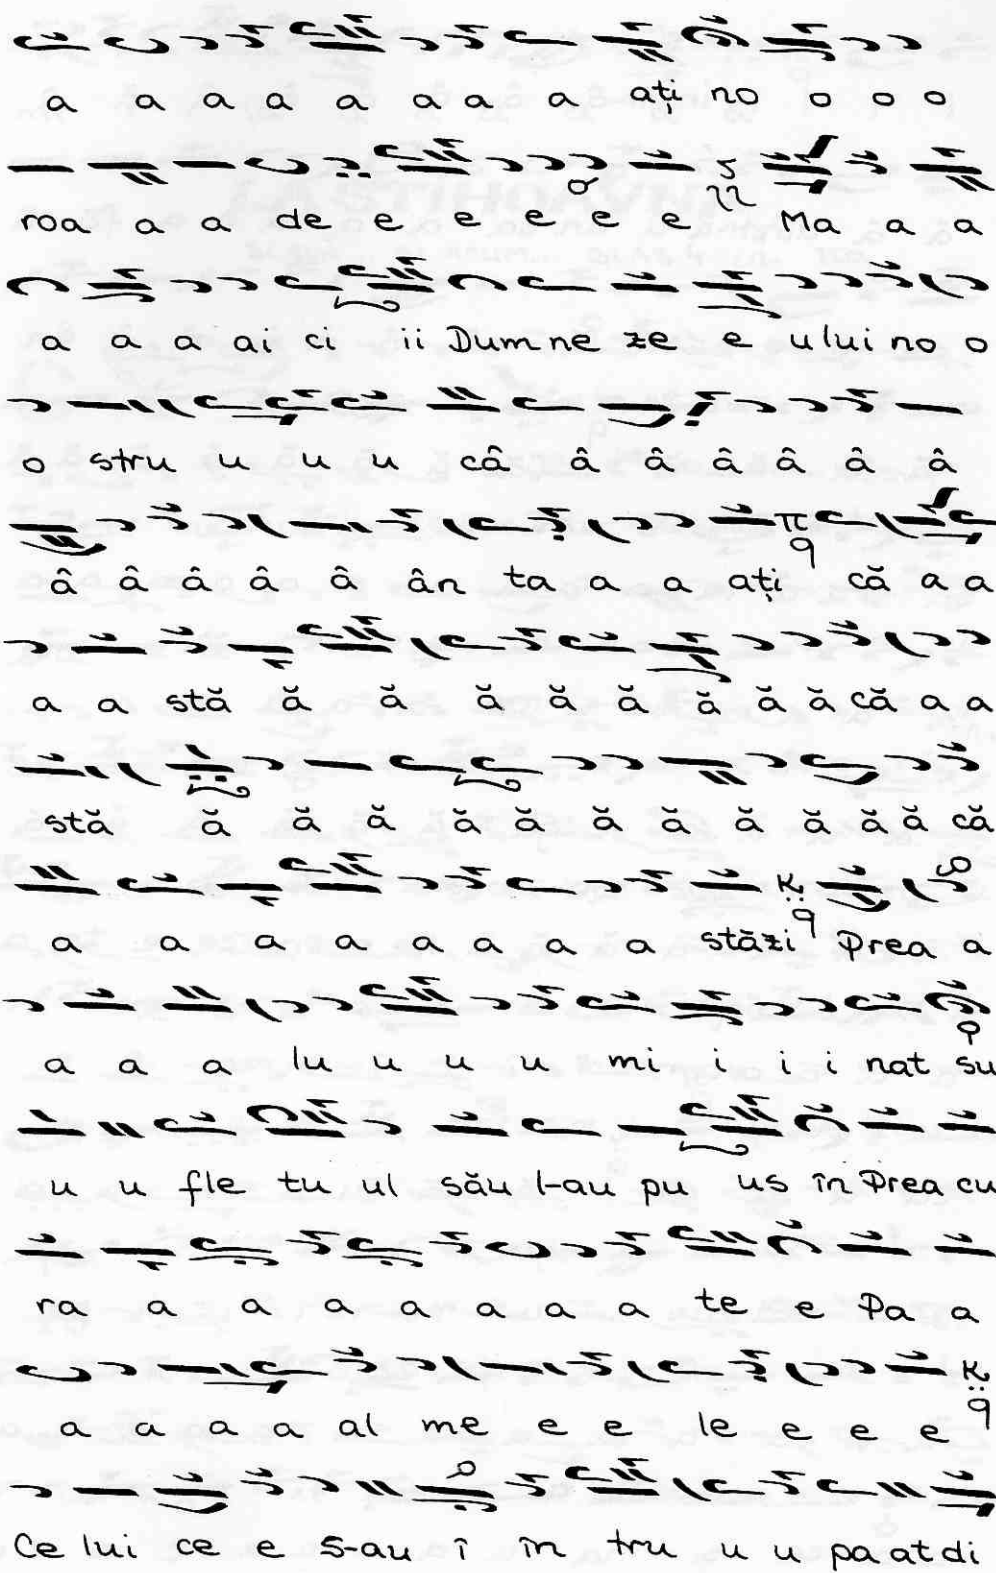 a a a a a a a a ați no o o o
roa a a de e e e e e Ma a a
a a a ai ci ii Dumne ze e ului no o
o stru u u u câ â â â â â â
â â â â â ân ta a a ați că a a
a a stă ă ă ă ă ă ă ă ă că a a
stă ă ă ă ă ă ă ă ă ă ă ă că
a a a a a a a a stăzi Prea a
a a a lu u u u mi i i i nat su
u u fle tu ul său l-au pu us în Prea cu
ra a a a a a a a te e Pa a
a a a a al me e e le e e e
Ce lui ce e s-au î în tru u u pa at di